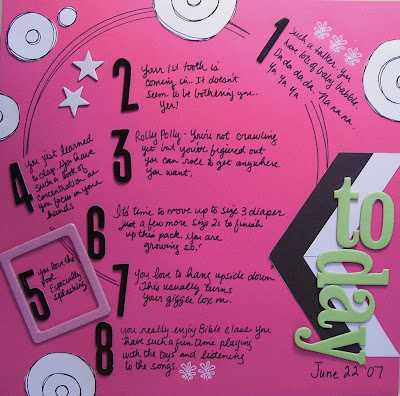 1
Such a talker. You
have lots of baby babble.
Da da da da - Na na na.
Ya Ya Ya
2
Your 1st tooth is
coming in.. It doesn't
seem to be bothering you..
Yea!
3
Rolly Polly - You're not crawling
yet but you've figured out
you can role to get anywhere
you want.
4
You just learned
to clap. You have
such a look of
concentration as
you focus on your
hands
5
You love the
pool...
Especially
splashing
6
It's time to move up to size 3 diaper
just a few more size 2s to finish
up this pack. You are
growing so!
7
You love to hang upside down
This usually turns
your giggle box on.
8
you really enjoy Bible class. You
have such a fun time playing
with the toys and listening
to the songs..
today
June 22 '07